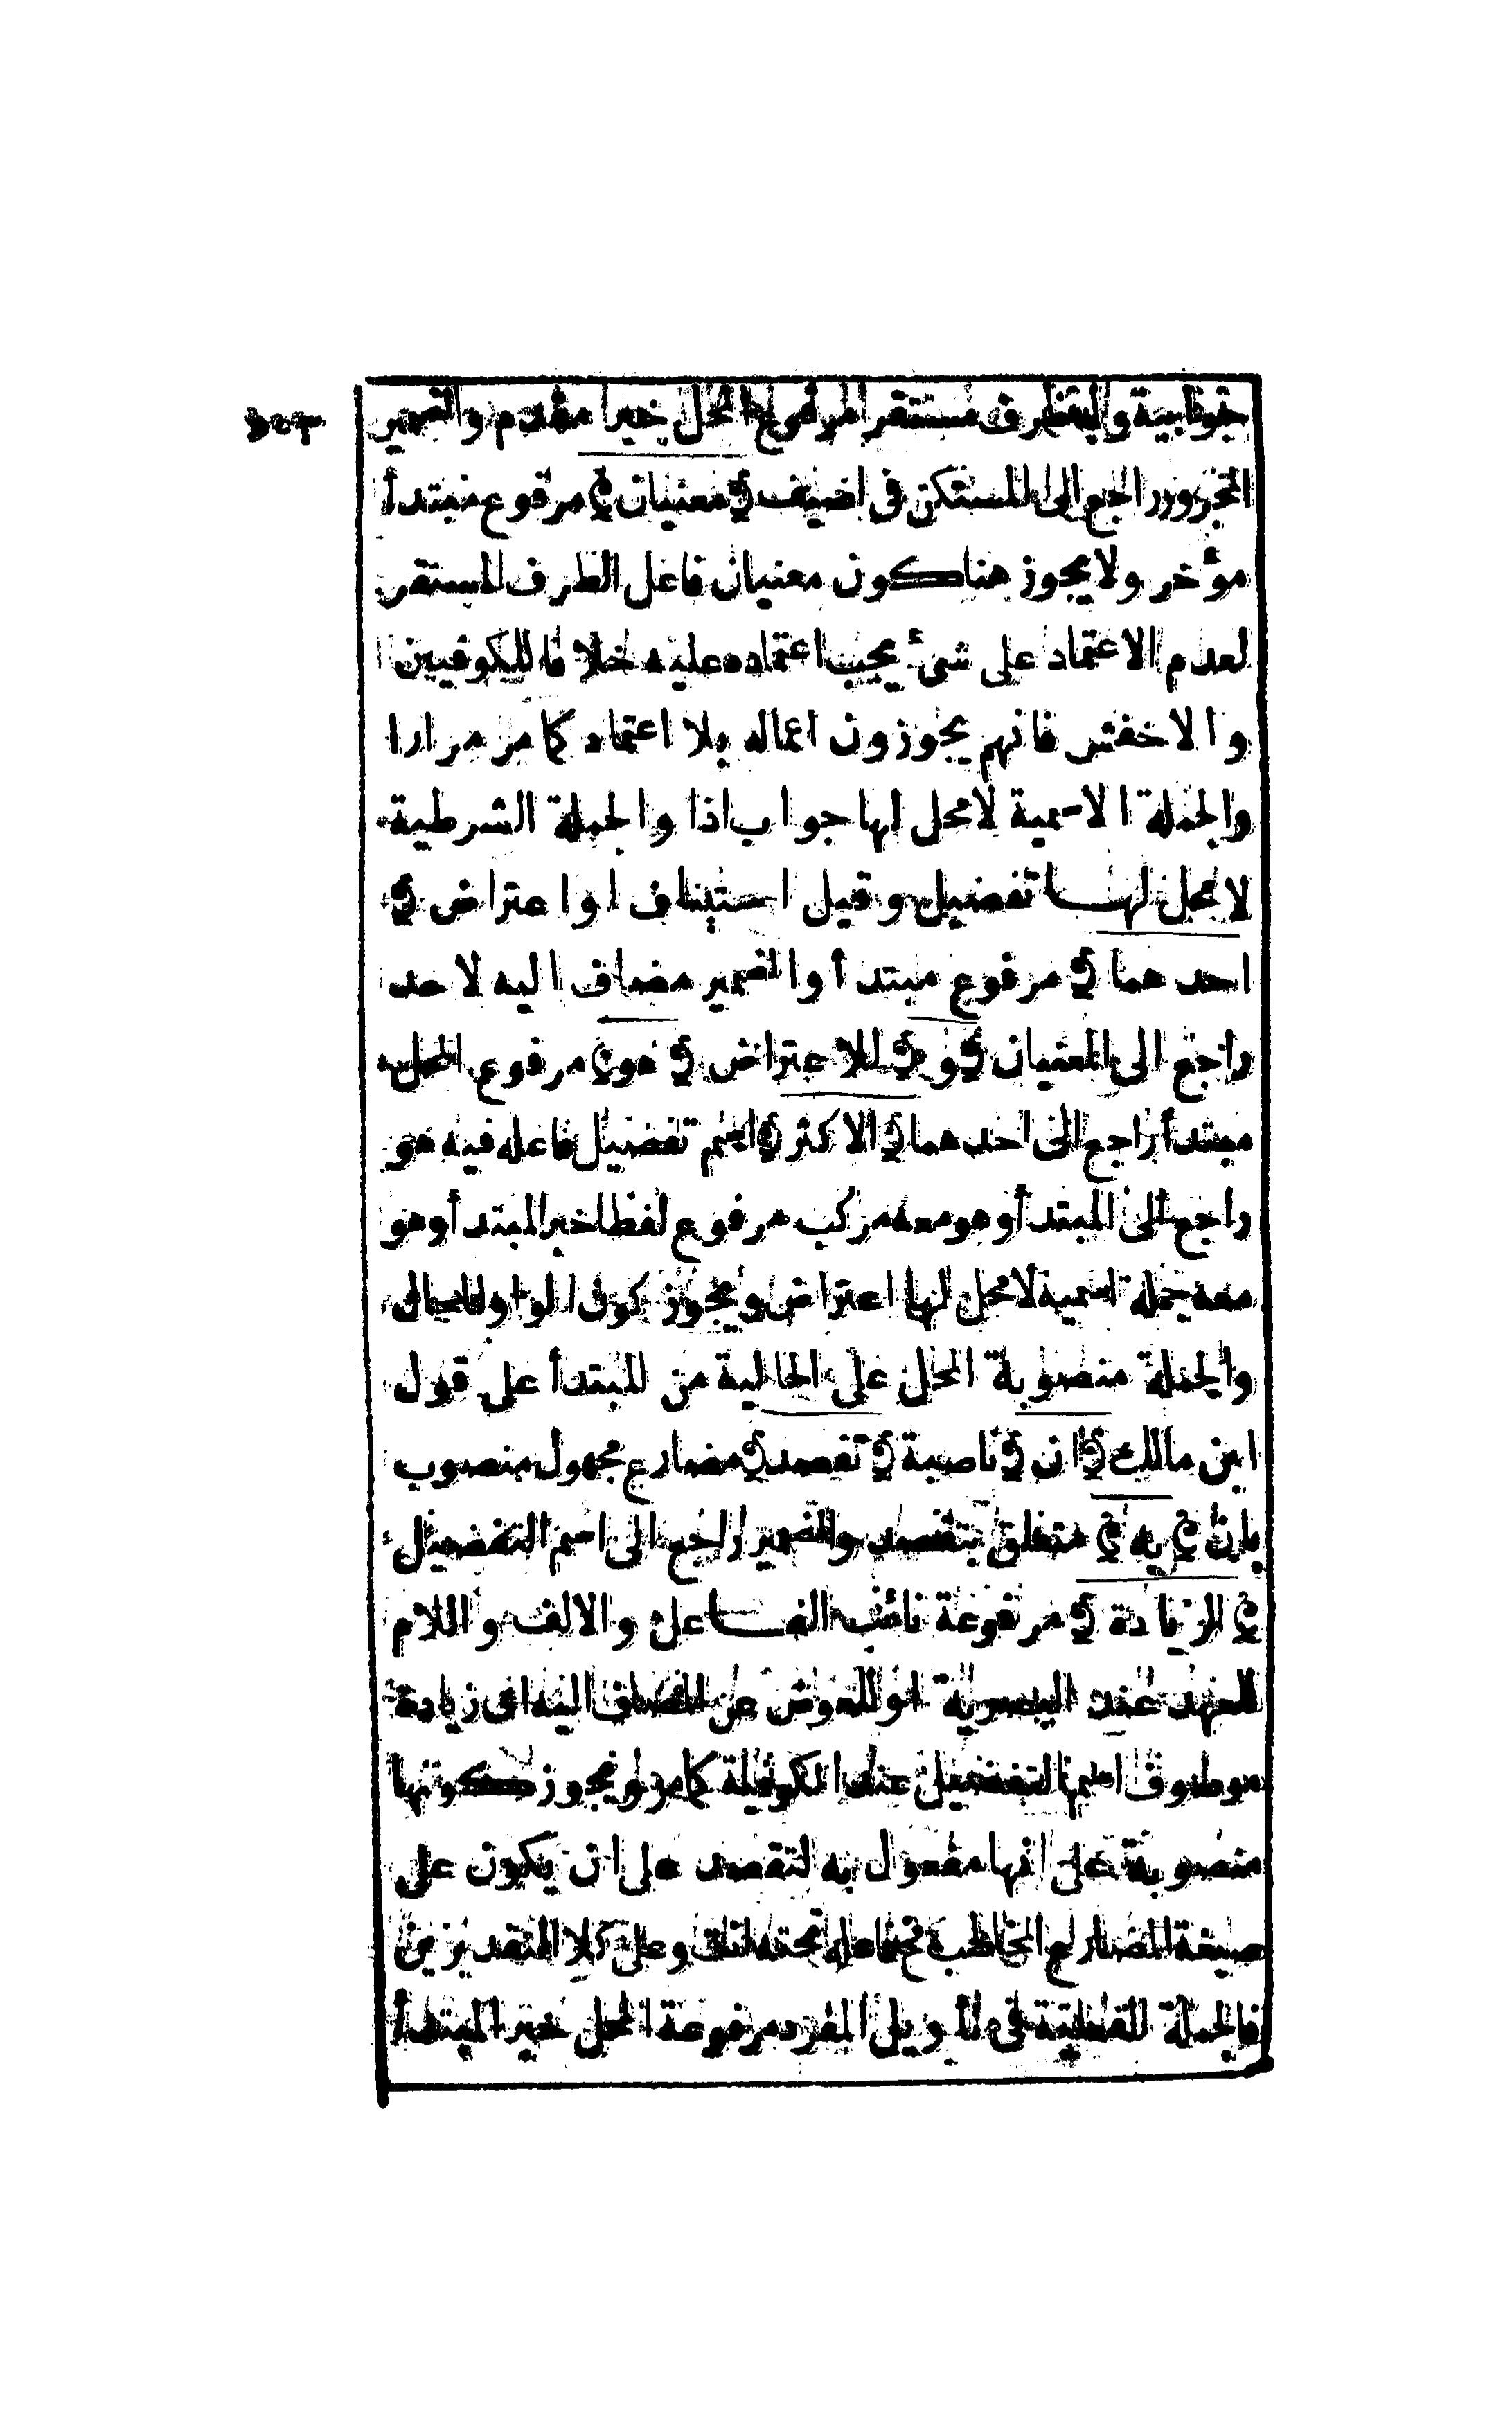 جوابية وله ظرف مستقر مرفوع المحل خبر مقدم والضمير
المجرور راجع الى المستكن فى اضيف ﴿ معنيان ﴾ مرفوع مبتدأ
مؤخر ولا يجوز هنا كون معنيان فاعل الظرف المستقر
لعدم الاعتماد على شئ يجب اعتماده عليه خلافا للكوفيين
والاخفش فانهم يجوزون اعماله بلا اعتماد كما مر مرارا
والجملة الاسمية لا محل لها جواب اذا والجملة الشرطية
لا محل لها تفصيل وقيل استيناف او اعتراض ﴿
احدهما ﴾ مرفوع مبتدأ والضمير مضاف اليه لاحد
راجع الى المعنيان ﴿ و ﴾ للاعتراض ﴿ هو ﴾ مرفوع المحل
مبتدأ راجع الى احدهما ﴿ الاكثر ﴾ اسم تفضيل فاعله فيه هو
راجع الى المبتدأ وهو معه مركب مرفوع لفظا خبر المبتدأ وهو
معه جملة اسمية لا محل لها اعتراض ويجوز كون الواو للحال
والجملة منصوبة المحل على الحالية من المبتدأ على قول
ابن مالك ﴿ ان ﴾ ناصبة ﴿ تقصد ﴾ مضارع مجهول منصوب
بان ﴿ به ﴾ متعلق بتقصد والضمير راجع الى اسم التفضيل
﴿ الزيادة ﴾ مرفوعة نائب الفاعل والالف واللام
للعهد عند البصرية او للعوض عن المضاف اليه اى زيادة
موصوف اسم التفضيل عند الكوفية كما مر ويجوز كونها
منصوبة على انها مفعول به لتقصد على ان يكون على
صيغة المضارع المخاطب فاعله تحته انت وعلى كلا التقديرين
فالجملة الفعلية فى تأويل المفرد مرفوعة المحل خبر المبتدأ